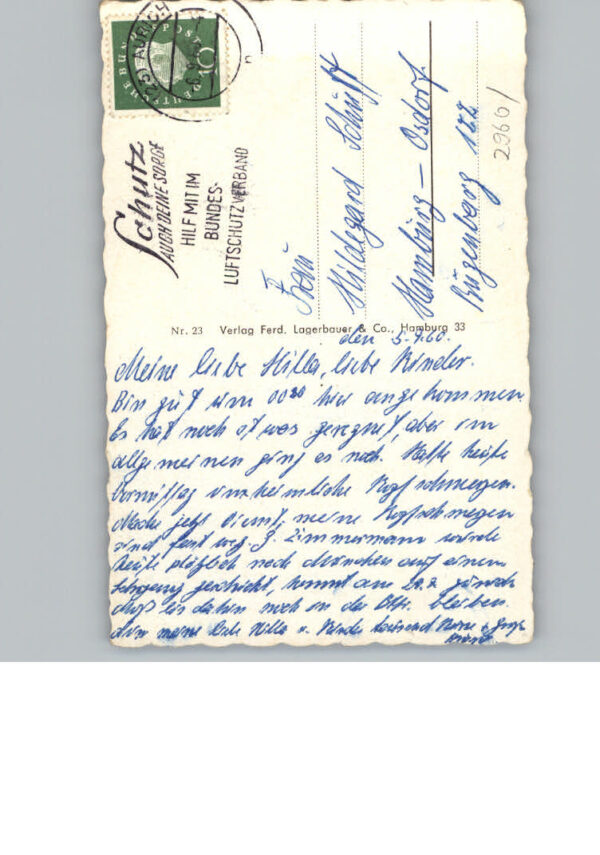 (23) AURICH
DEUTSCHE BUNDESPOST
10
Schutz
AUCH DEINE SORGE
HILF MIT IM
BUNDES-
LUFTSCHUTZVERBAND
Frau
Hildegard Schütt
Hamburg – Osdorf
Rugenbarg 122
2960/
Nr. 23 Verlag Ferd. Lagerbauer & Co., Hamburg 33
den 5.9.60.
Meine liebe Hilla, liebe Kinder.
Bin gut um 00³⁰ hier angekommen.
Es hat noch etwas geregnet, aber im
allgemeinen ging es noch. Hatte heute
vormittag unheimliche Kopfschmerzen.
Mache jetzt Dienst, meine Kopfschmerzen
sind fast weg. Zimmermann wurde
heute plötzlich nach München auf einen
Lehrgang geschickt, kommt am zurück
Muß bis dahin noch in der bleiben.
meine liebe Hilla u. Kinder tausend Küsse u. Grüße